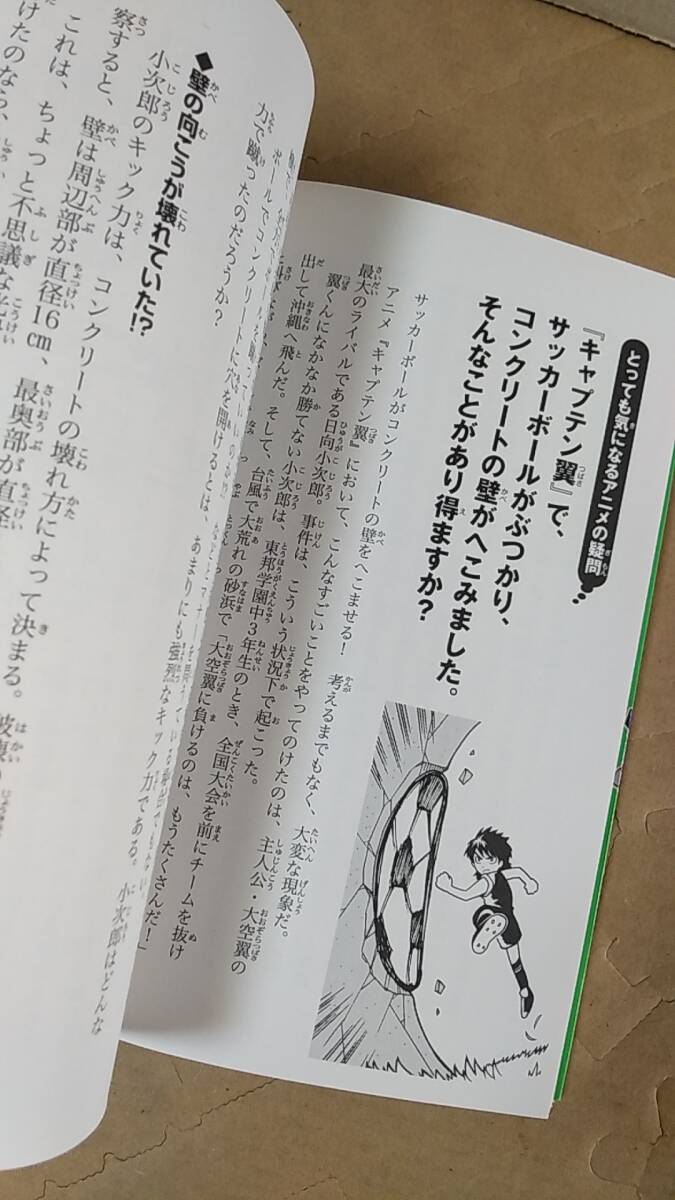 とっても気になるアニメの疑問
『キャプテン翼』で、
サッカーボールがぶつかり、
コンクリートの壁がへこみました。
そんなことがあり得ますか?
サッカーボールがコンクリートの壁をへこませる! 考えるまでもなく、大変な現象だ。
アニメ『キャプテン翼』において、こんなすごいことをやってのけたのは、主人公・大空翼の
最大のライバルである日向小次郎。事件は、こういう状況下で起こった。
翼くんになかなか勝てない小次郎は、東邦学園中3年生のとき、全国大会を前にチームを抜け
出して沖縄へ飛んだ。そして、台風で大荒れの砂浜で「大空翼に負けるのは、もうたくさんだ!」
ボールでコンクリートに穴を開けるとは、あまりにも強烈なキック力である。小次郎はどんな
力で蹴ったのだろうか?
◆壁の向こうが壊れていた!?
小次郎のキック力は、コンクリートの壊れ方によって決まる。
察すると、壁は周辺部が直径16㎝、最奥部が直径
これは、ちょっと不思議な光景
けたのなら、